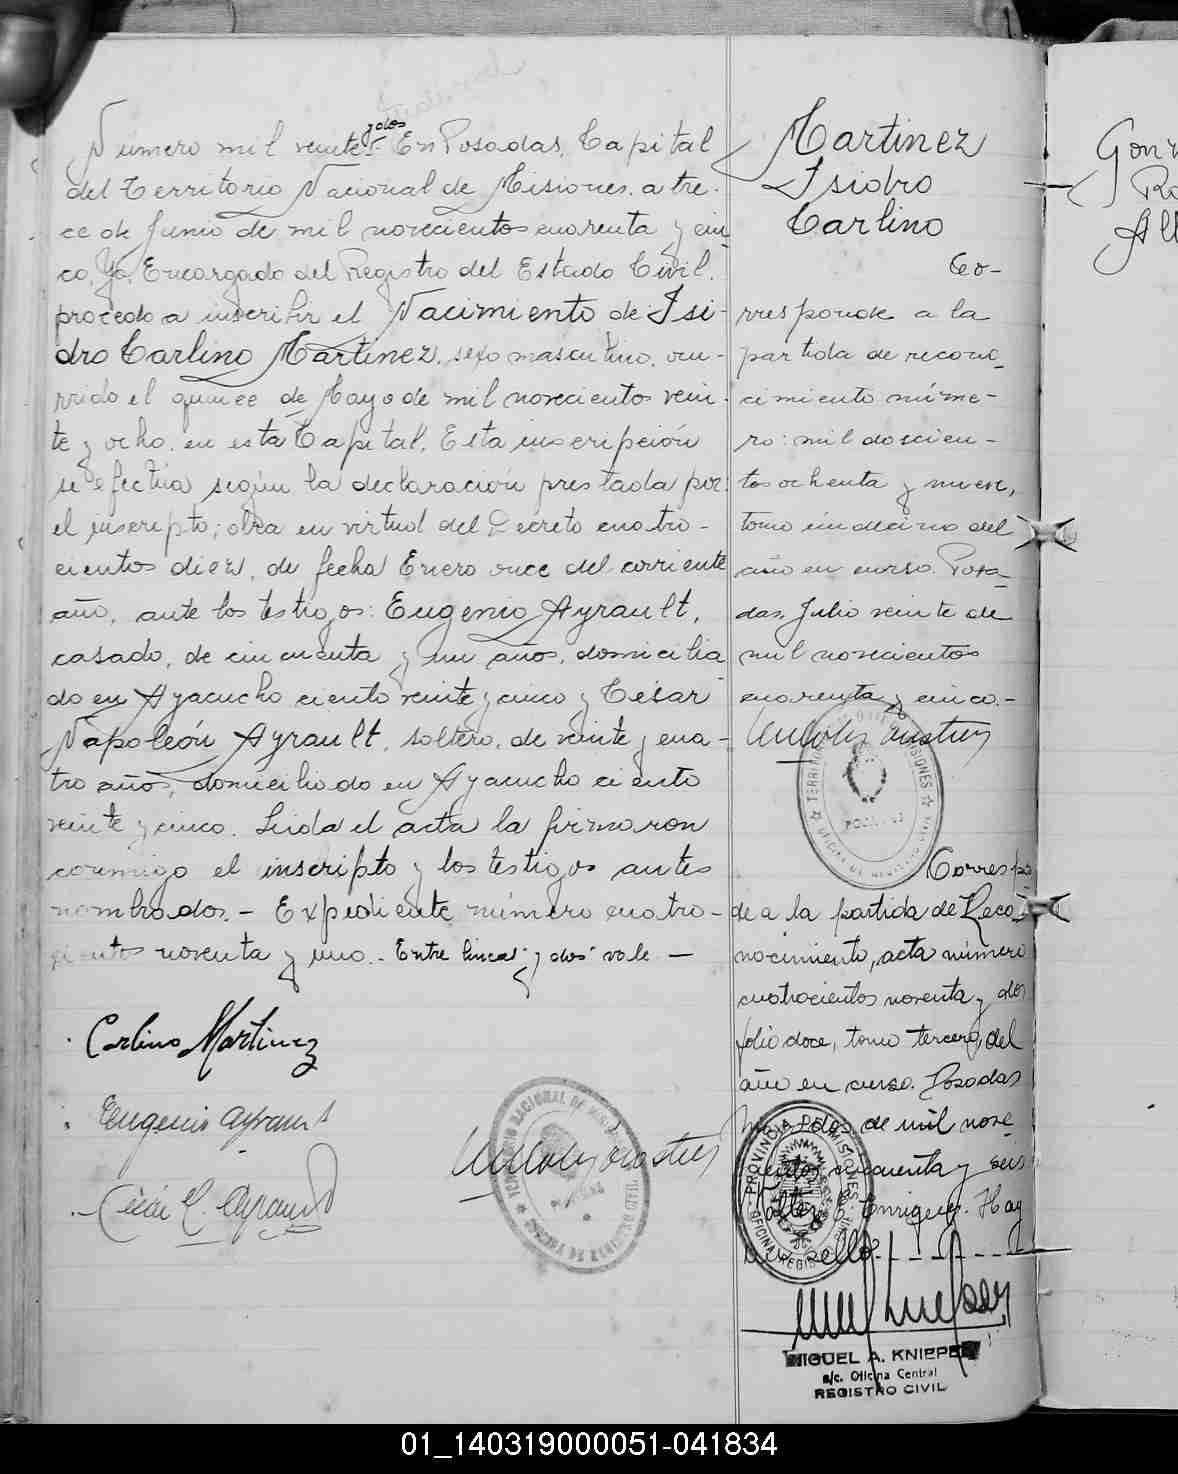 Número mil veinte y dos - En Posadas, Capital
del Territorio Nacional de Misiones, a tre-
ce de Junio de mil novecientos cuarenta y cin
co, Yo, Encargado del Registro del Estado Civil,
procedo a inscribir el Nacimiento de Isi-
dro Carlino Martinez, sexo masculino, ocu-
rrido el quince de Mayo de mil novecientos vein-
te y ocho, en esta Capital. Esta inscripción
se efectúa según la declaración prestada por
el inscripto; obra en virtud del Decreto cuatro-
cientos diez, de fecha Enero once del corriente
año, ante los testigos: Eugenio Ayrault,
casado, de cincuenta y un años, domicilia
do en Ayacucho ciento veinte y cinco y César
Napoleón Ayrault, soltero, de veinte y cua-
tro años, domiciliado en Ayacucho ciento
veinte y cinco. Leída el acta la firmaron
conmigo el inscripto y los testigos antes
nombrados. - Expediente número cuatro-
cientos noventa y uno. - Entre lineas: y dos vale -
Carlino Martinez
Eugenio Ayrault
César N. Ayrault
Martinez
Isidro
Carlino
Co-
rresponde a la
partida de recono-
cimiento núme-
ro: mil doscien-
tos ochenta y nueve,
tomo undecimo del
año en curso. Posa-
das, Julio veinte de
mil novecientos
cuarenta y cinco. -
Correspon
de a la partida de Reco-
nocimiento, acta número
cuatrocientos noventa y dos
folio doce, tomo tercero, del
año en curso. Posadas
dos, de mil nove
cientos cincuenta y seis
Enrique. Hay
un sello. - - - -
PROVINCIA DE MISIONES
MIGUEL A. KNIEPER
a/c. Oficina Central
REGISTRO CIVIL
01_140319000051-041834